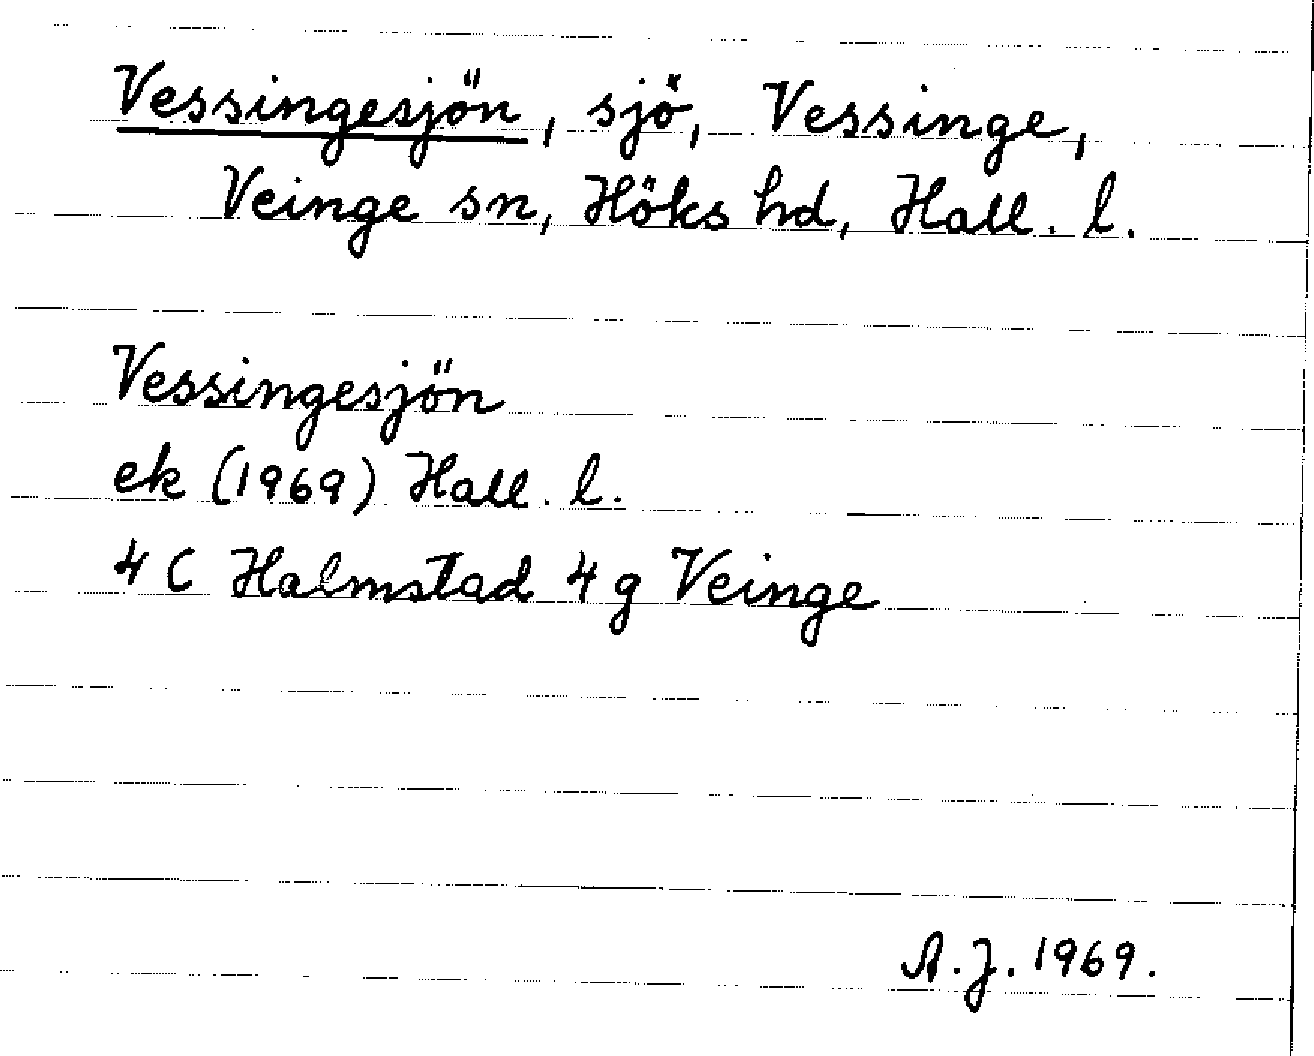 Vessingesjön, sjö, Vessinge,
Veinge sn, Höks hd, Hall. l.
Vessingesjön
ek (1969) Hall. l.
4 C Halmstad 4 g Veinge
A.J. 1969.